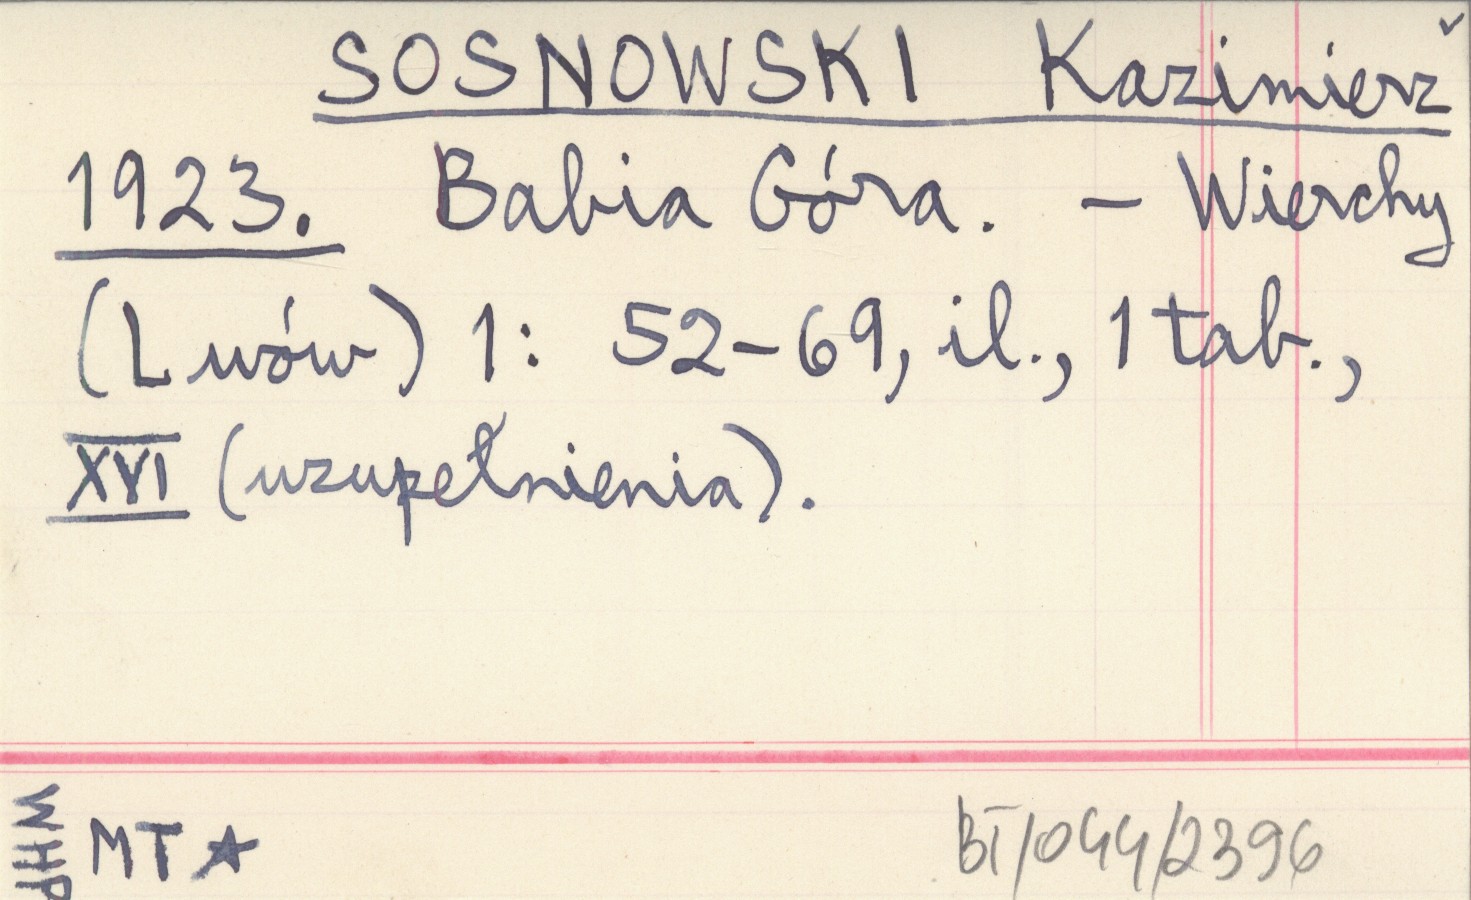 SOSNOWSKI Kazimierz
1923. Babia Góra. – Wierchy
(Lwów) 1: 52–69, il., 1 tab.,
XVI (uzupełnienia).
WHP
MT ★
BT/044/2396